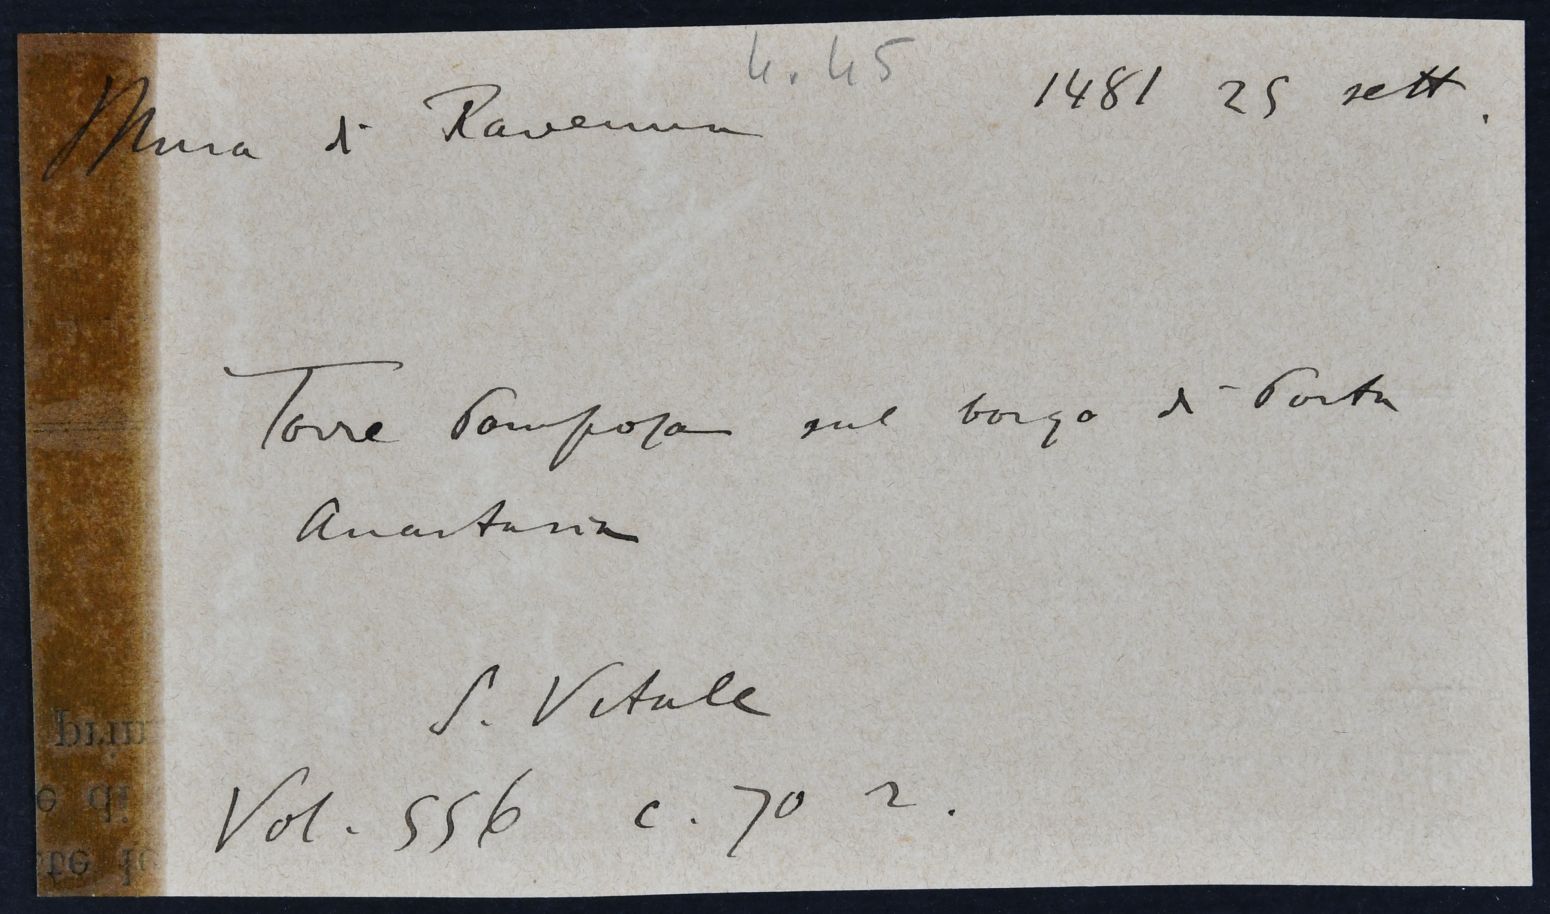 4.45
Mura di Ravenna 1481 25 sett.
Torre Pomposa sul borgo di Porta
Anastasia
S. Vitale
Vol. 556 c. 70 r.